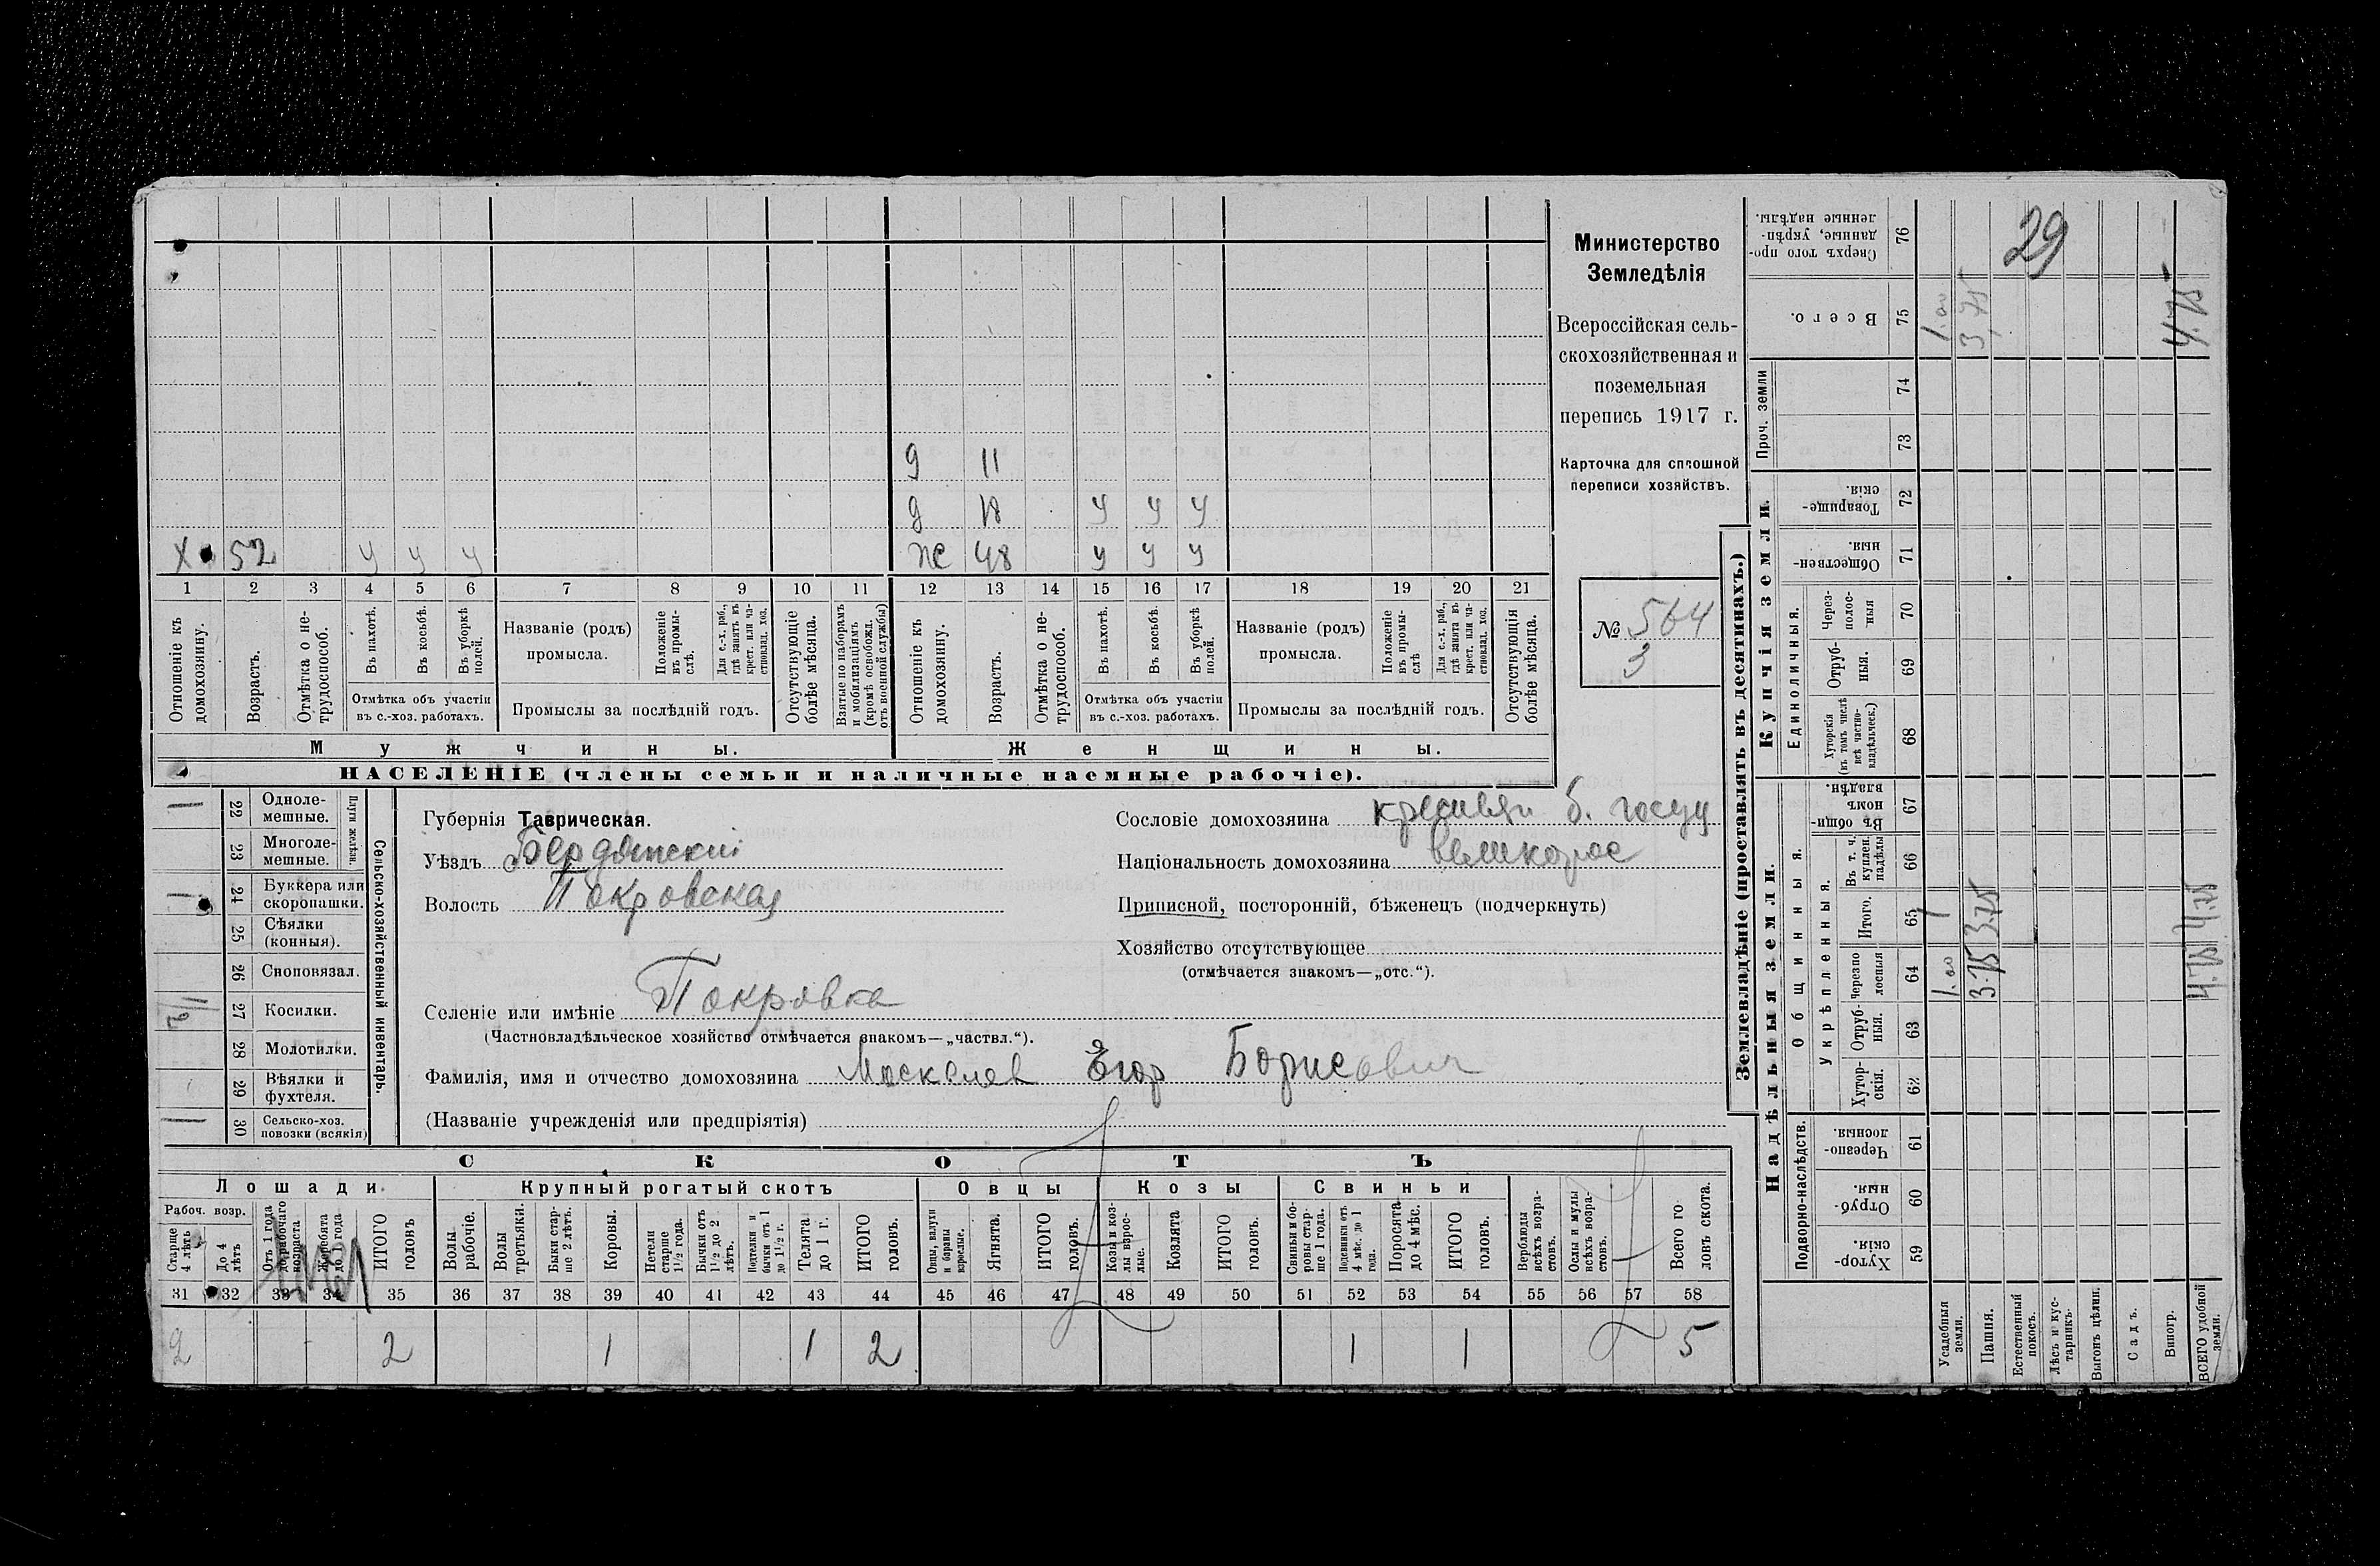 Министерство
Земледѣлія
Всероссійская сель-
скохозяйственная и
поземельная
перепись 1917 г.
Карточка для сплошной
переписи хозяйствъ.
№ 564
3
29
д 11
д 18 у у у
х 52 у у у ж 48 у у у
1 2 3 4 5 6 7 8 9 10 11 12 13 14 15 16 17 18 19 20 21
Отношеніе къ домохозяину.
Возрастъ.
Отмѣтка о не-трудоспособ.
Въ пахотѣ.
Въ косьбѣ.
Въ уборкѣ полей.
Отмѣтка объ участіи
въ с.-хоз. работахъ.
Названіе (родъ)
промысла.
Положеніе въ промы-слѣ.
Для с.-х. раб., гдѣ занятъ въ крест. или ча-стновлад. хоз.
Промыслы за послѣдній годъ.
Отсутствующіе болѣе мѣсяца.
Взятые по наборамъ и мобилизаціямъ (кромѣ освобожд. отъ военной службы)
Отношеніе къ домохозяину.
Возрастъ.
Отмѣтка о не-трудоспособ.
Въ пахотѣ.
Въ косьбѣ.
Въ уборкѣ полей.
Отмѣтка объ участіи
въ с.-хоз. работахъ.
Названіе (родъ)
промысла.
Положеніе въ промы-слѣ
Для с.-х. раб., гдѣ занята въ крест. или ча-стновлад. хоз.
Промыслы за послѣдній годъ.
Отсутствующія болѣе мѣсяца.
Мужчины. Женщины.
НАСЕЛЕНІЕ (члены семьи и наличные наемные рабочіе).
Сельско-хозяйственный инвентарь.
Плуги желѣзн.
1 22 Одноле-мешные.
23 Многоле-мешные.
1 24 Буккера или скоропашки.
25 Сѣялки (конныя).
26 Сноповязал.
27 Косилки.
28 Молотилки.
29 Вѣялки и фухтеля.
1 30 Сельско-хоз. повозки (всякія)
Губернія Таврическая.
Уѣздъ Бердянский
Волость Покровская
Селеніе или имѣніе Покровка
(Частновладѣльческое хозяйство отмѣчается знакомъ—„частвл.“).
Фамилія, имя и отчество домохозяина Москалев Егор Борисович
(Названіе учрежденія или предпріятія)
Сословіе домохозяина крестьян б. госуд
Національность домохозяина великорос
Приписной, посторонній, бѣженецъ (подчеркнуть)
Хозяйство отсутствующее
(отмѣчается знакомъ—„отс.“).
СКОТЪ
Лошади. Крупный рогатый скотъ Овцы Козы Свиньи
Рабоч. возр.
Старше 4 лѣтъ
До 4 лѣтъ
Отъ 1 года до рабочаго возраста
Жеребята до 1 года.
ИТОГО головъ
Волы рабочіе.
Волы третьяки.
Быки стар-ше 2 лѣтъ.
Коровы.
Нетели старше 1½ года.
Бычки отъ 1½ до 2 лѣтъ.
Подтелки и бычки отъ 1 до 1½ г.
Телята до 1 г.
ИТОГО головъ.
Овцы, валухи и бараны взрослые.
Ягнята.
ИТОГО головъ.
Козы и коз-лы взрос-лые.
Козлята
ИТОГО головъ.
Свиньи и бо-ровы стар-ше 1 года.
Подсвинки отъ 4 мѣс. до 1 года.
Поросята до 4 мѣс.
ИТОГО головъ.
Верблюды всѣхъ возра-стовъ.
Ослы и мулы всѣхъ возра-стовъ.
Всего го-ловъ скота.
31 32 33 34 35 36 37 38 39 40 41 42 43 44 45 46 47 48 49 50 51 52 53 54 55 56 57 58
2 2 1 1 2 1 1 5
Землевладѣніе (проставлять въ десятинахъ.)
Надѣльныя земли. Купчія земли.
Подворно-наслѣдств. Общинныя. Укрѣпленныя. Единоличныя. Проч. земли
Хутор-скія. 59
Отруб-ныя. 60
Черезпо-лосныя. 61
Хутор-скія. 62
Отруб-ныя. 63
Черезпо-лосныя 64
Итого. 65
Въ т. ч. куплен. надѣлы 66
Въ общин-номъ владѣн. 67
Хуторскія (въ томъ числѣ всѣ частно-владѣльческ.) 68
Отруб-ныя. 69
Через-полос-ныя 70
Обществен-ныя. 71
Товарище-скія. 72
73
74
Всего. 75
Сверхъ того про-данные, укрѣп-ленные надѣлы. 76
Усадебныя земли. 1.00 1 1.00
Пашня. 3.75 3.75 3,75
Естественный покосъ.
Лѣсъ и кус-тарникъ.
Выгонъ цѣлин.
Садъ.
Виногр.
ВСЕГО удобной земли. 4.75 4.75 4.75